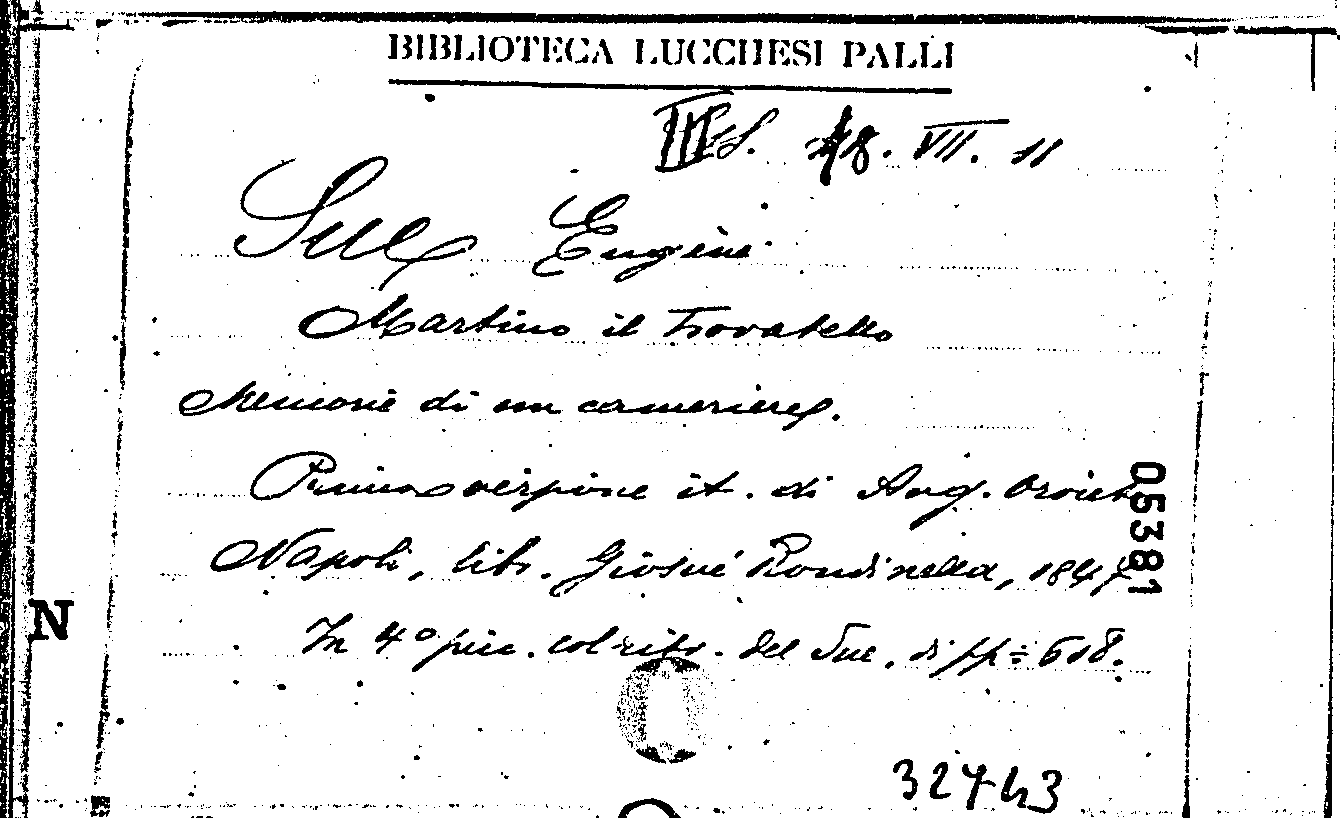 BIBLIOTECA LUCCHESI PALLI
18. VII. 11
Sue Eugène
Martino il Trovatello
Memorie di un cameriere.
Prima versione it. di Aug. Orvieto
Napoli, libr. Giosuè Rondinella, 1847
In 4º pic. col ritr. del Sue, di pp. 608.
05381
N
32743